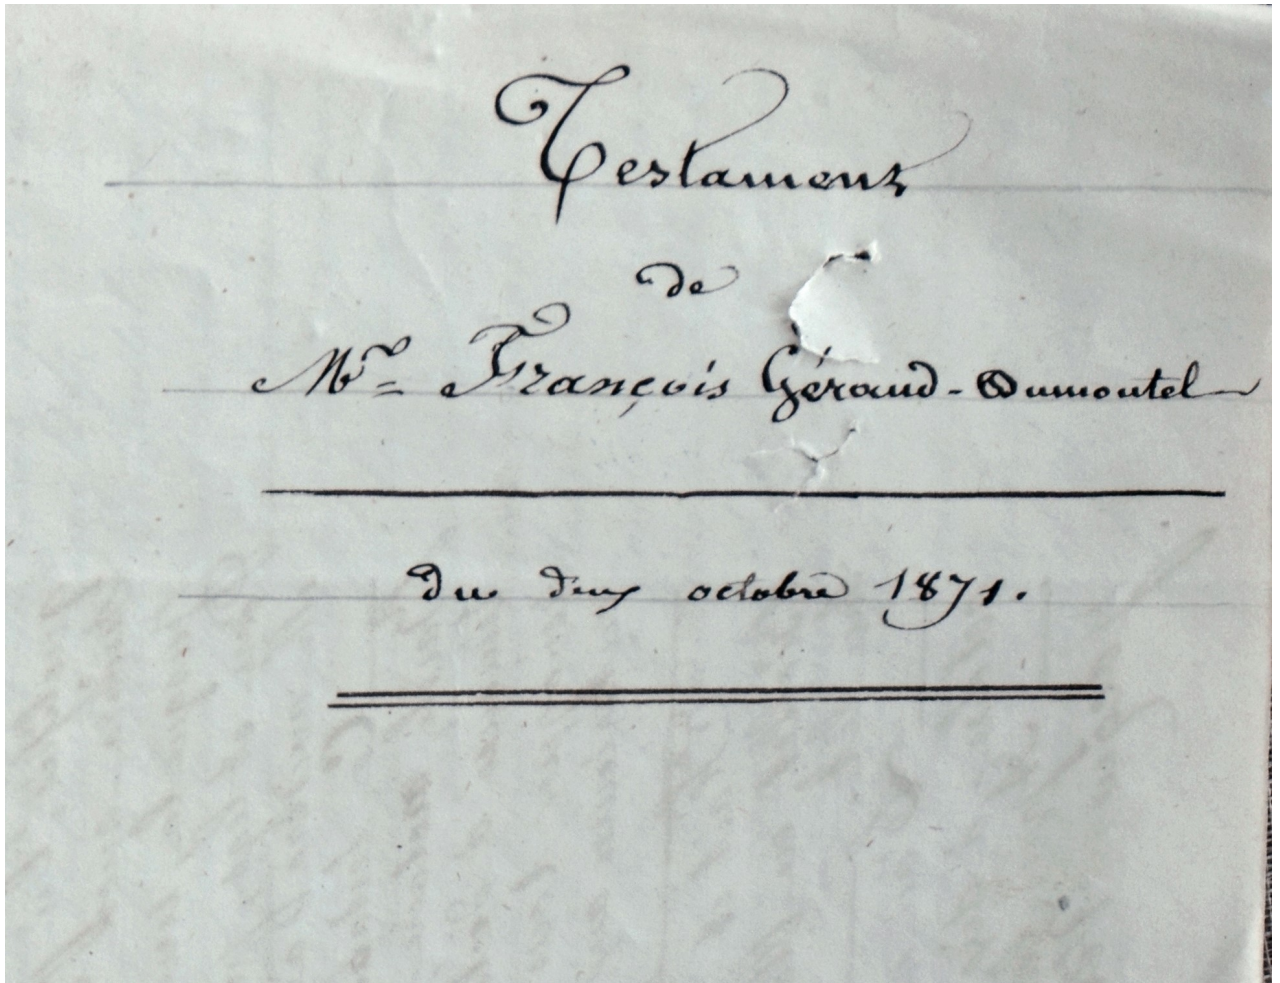 Testament
de
Mr François Géraud-Dumoutel
du deux octobre 1871.